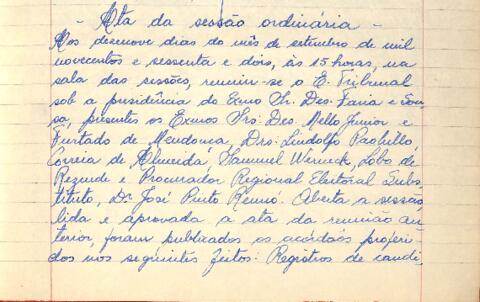 - Ata da sessão ordinária -
Aos dezenove dias do mês de setembro de mil
novecentos e sessenta e dois, às 15 horas, na
sala das sessões, reuniu-se o E. Tribunal
sob a presidência do Exmo Sr. Des. Faria e Sou-
sa, presentes os Exmos Srs: Des. Mello Junior e
Furtado de Mendonça, Drs: Lindolfo Paoliello,
Correia de Almeida, Samuel Werneck, Lobo de
Rezende e Procurador Regional Eleitoral Subs-
tituto, Dr José Pinto Renno. Aberta a sessão
lida e aprovada a ata da reunião an-
terior, foram publicados os acórdãos proferi-
dos nos seguintes feitos: Registros de candi-